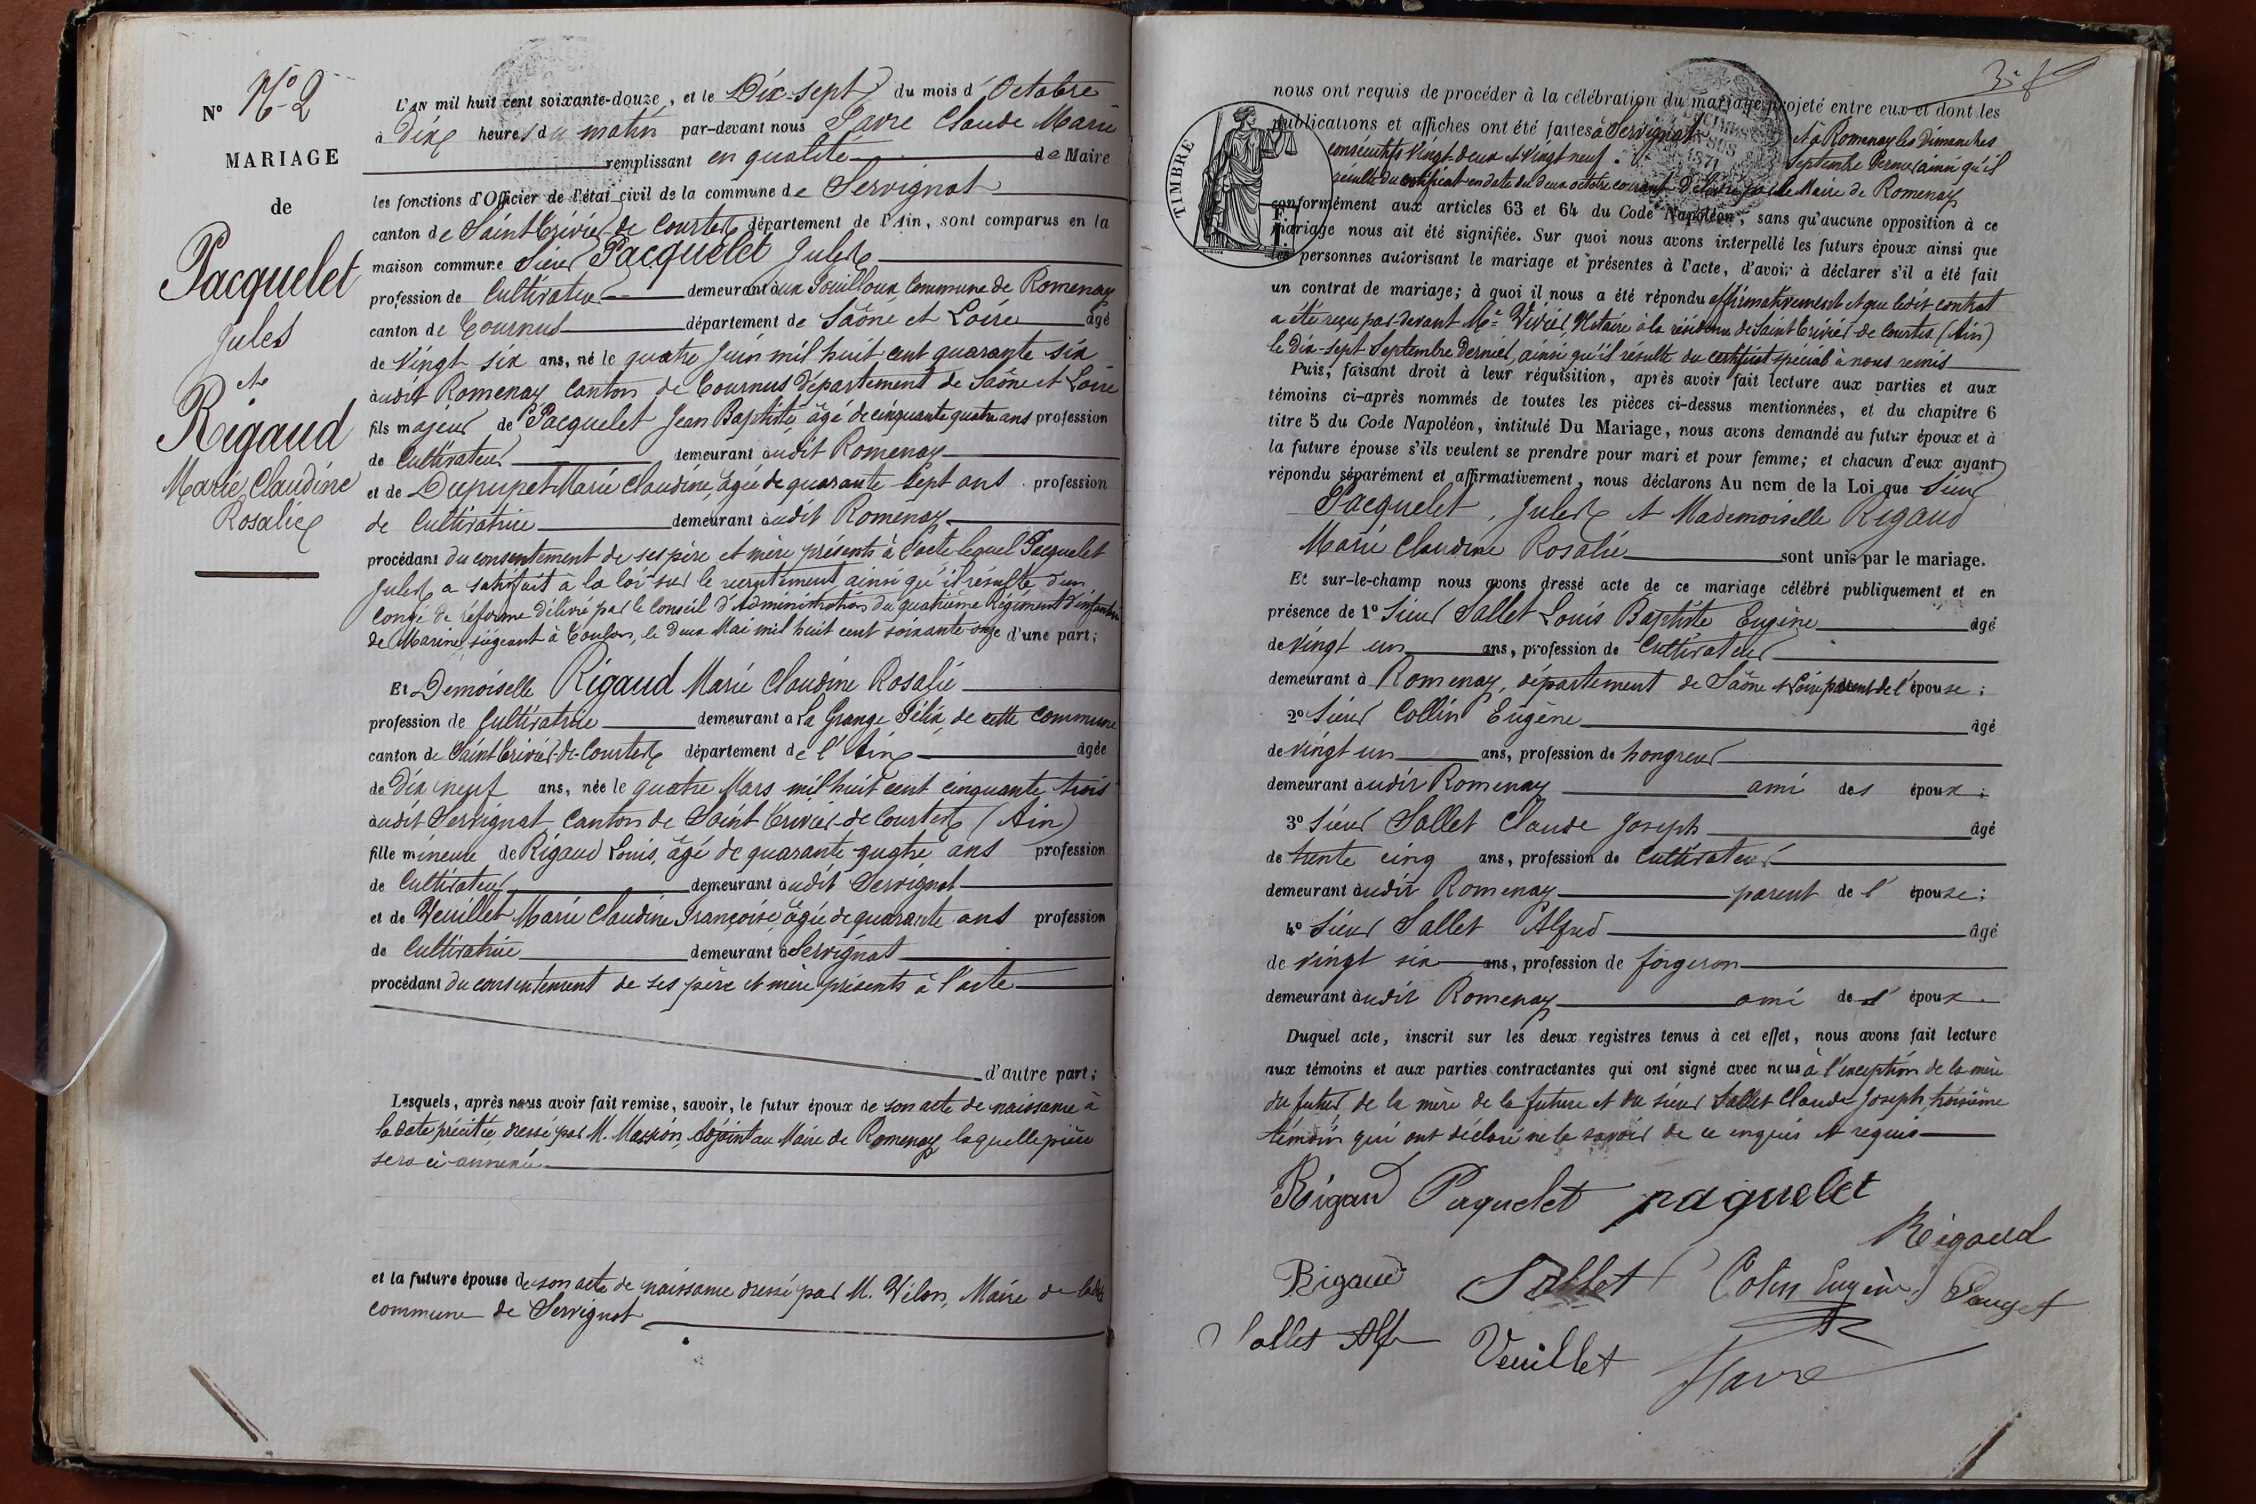 N° N° 2
MARIAGE
de
Pacquelet
Jules
et
Rigaud
Marie Claudine
Rosalie
L'AN mil huit cent soixante-douze, et le Dix-sept du mois d'Octobre
à Dix heures du matin par-devant nous Favre Claude Marie
remplissant en qualité de Maire
les fonctions d'Officier de l'état civil de la commune de Servignat
canton de Saint Trivier de Courtes, département de l'Ain, sont comparus en la
maison commune Sieur Pacquelet Jules
profession de Cultivateur demeurant aux Souilloux Commune de Romenay
canton de Tournus département de Saône et Loire âgé
de vingt six ans, né le quatre Juin mil huit cent quarante six
audit Romenay Canton de Tournus Département de Saône et Loire
fils majeur de Pacquelet Jean Baptiste, âgé de cinquante quatre ans profession
de Cultivateur demeurant audit Romenay
et de Dupupet Marie Claudine, âgée de quarante-sept ans. profession
de Cultivatrice demeurant audit Romenay
procédant du consentement de ses père et mère présents à l'acte lequel Pacquelet
Jules a satisfait à la loi sur le recrutement ainsi qu'il résulte d'un
congé de réforme délivré par le Conseil d'Administration du quatrième Régiment d'infanterie
de Marine, siégeant à Toulon, le deux Mai mil huit cent soixante onze d'une part;
Et Demoiselle Rigaud Marie Claudine Rosalie
profession de Cultivatrice demeurant à La Grange Félix, de cette commune
canton de Saint Trivier-de-Courtes département de l'Ain âgée
de Dix neuf ans, née le quatre Mars mil huit cent cinquante trois
audit Servignat Canton de Saint Trivier de Courtes (Ain)
fille mineure de Rigaud Louis, âgé de quarante quatre ans profession
de Cultivateur demeurant audit Servignat
et de Veuillet Marie Claudine Françoise, âgée de quarante ans profession
de Cultivatrice demeurant à Servignat
procédant du consentement de ses père et mère présents à l'acte
d'autre part;
Lesquels, après nous avoir fait remise, savoir, le futur époux de son acte de naissance à
la date précitée dressé par M. Masson, Adjoint au Maire de Romenay laquelle pièce
sera ci-annexée
et la future épouse de son acte de naissance dressé par M. Vilon, Maire de ladite
commune de Servignat
nous ont requis de procéder à la célébration du mariage projeté entre eux et dont les
publications et affiches ont été faites à Servignat et à Romenay les Dimanches
consécutifs vingt-deux et vingt neuf Septembre Dernier, ainsi qu'il
résulte du certificat en date du deux octobre courant Délivré par le Maire de Romenay
conformément aux articles 63 et 64 du Code Napoléon, sans qu'aucune opposition à ce
mariage nous ait été signifiée. Sur quoi nous avons interpellé les futurs époux ainsi que
les personnes autorisant le mariage et présentes à l'acte, d'avoir à déclarer s'il a été fait
un contrat de mariage; à quoi il nous a été répondu affirmativement et que ledit contrat
a été reçu par-devant Me Vivier, Notaire à la résidence de Saint Trivier de Courtes (Ain)
le dix-sept Septembre Dernier, ainsi qu'il résulte du certificat spécial à nous remis
Puis, faisant droit à leur réquisition, après avoir fait lecture aux parties et aux
témoins ci-après nommés de toutes les pièces ci-dessus mentionnées, et du chapitre 6
titre 5 du Code Napoléon, intitulé Du Mariage, nous avons demandé au futur époux et à
la future épouse s'ils veulent se prendre pour mari et pour femme; et chacun d'eux ayant
répondu séparément et affirmativement, nous déclarons Au nom de la Loi que Sieur
Pacquelet, Jules et Mademoiselle Rigaud
Marie Claudine Rosalie sont unis par le mariage.
Et sur-le-champ nous avons dressé acte de ce mariage célébré publiquement et en
présence de 1° Sieur Sallet Louis Baptiste Eugène âgé
de vingt un ans, profession de Cultivateur
demeurant à Romenay, département de Saône et Loire parent de l'épouse;
2° Sieur Collin Eugène âgé
de vingt un ans, profession de hongreur
demeurant audit Romenay ami des époux;
3° Sieur Sallet Claude Joseph âgé
de trente cinq ans, profession de Cultivateur
demeurant audit Romenay parent de l'épouse;
4° Sieur Sallet Alfred âgé
de vingt six ans, profession de forgeron
demeurant audit Romenay ami de l'époux.
Duquel acte, inscrit sur les deux registres tenus à cet effet, nous avons fait lecture
aux témoins et aux parties contractantes qui ont signé avec nous à l'exception de la mère
du futur, de la mère de la future et du sieur Sallet Claude Joseph, troisième
témoin qui ont déclaré ne le savoir de ce enquis et requis
Rigaud Paquelet paquelet
Rigaud
Rigaud Sallet Colin Eugène Pauget
Sallet Alf Veuillet Favre
TIMBRE